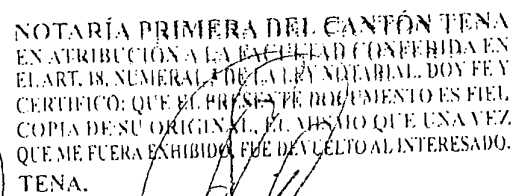 NOTARÍA PRIMERA DEL CANTÓN TENA
EN ATRIBUCIÓN A LA FACULTAD CONFERIDA EN
EL ART. 18, NUMERAL 5 DE LA LEY NOTARIAL, DOY FE Y
CERTIFICO: QUE EL PRESENTE DOCUMENTO ES FIEL
COPIA DE SU ORIGINAL, EL MISMO QUE UNA VEZ
QUE ME FUERA EXHIBIDO, FUE DEVUELTO AL INTERESADO.
TENA.